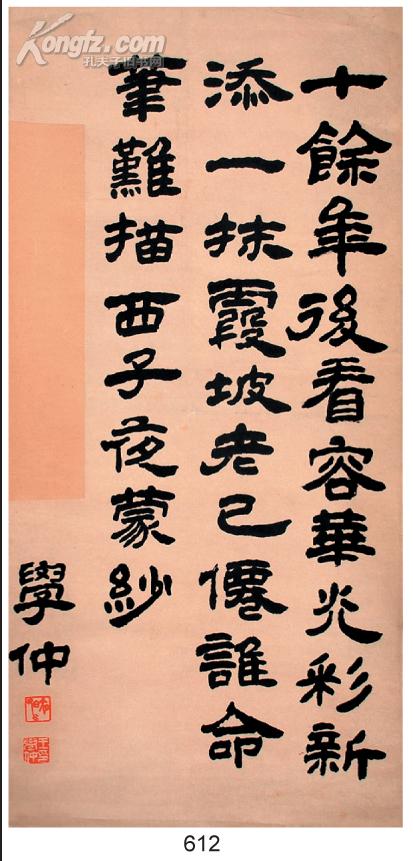 Kongfz.com
孔夫子旧书网
十餘年後看容華光彩新
添一抹霞坡老已僊誰命
筆難描西子夜蒙紗
學仲
612